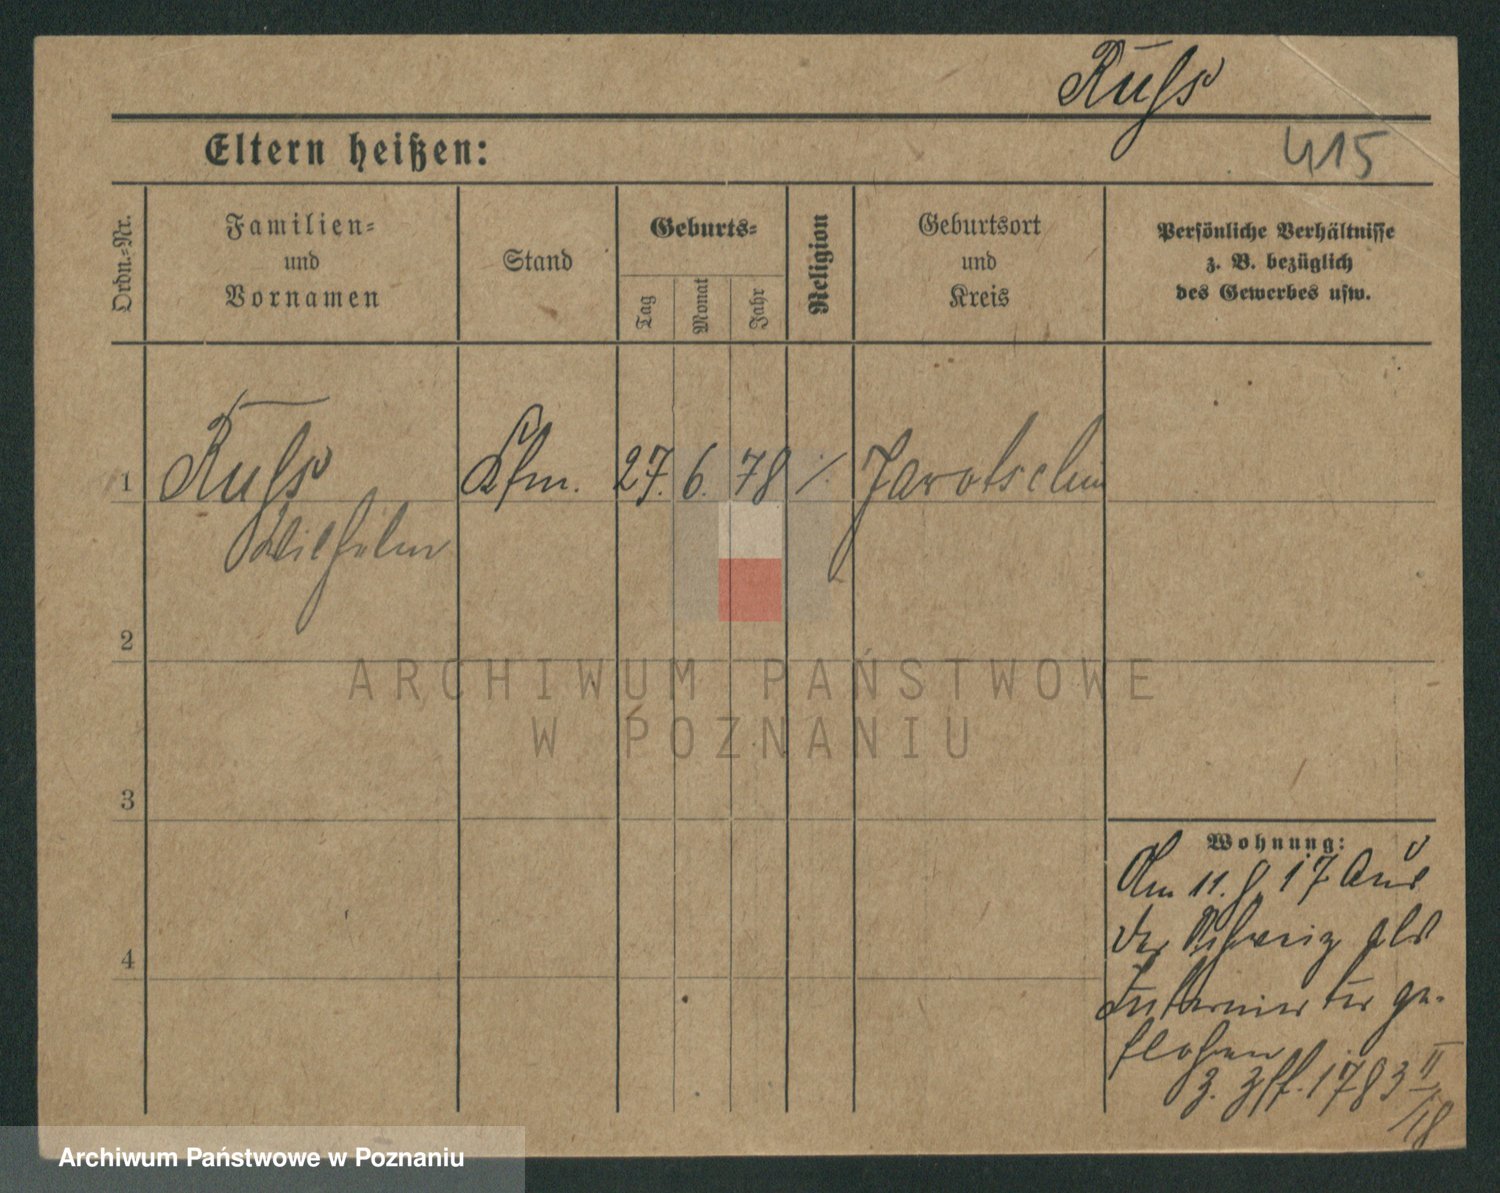 Ruß
415
Eltern heißen:
Ordn.-Nr.
Familien-
und
Vornamen
Stand
Geburts-
Tag
Monat
Jahr
Religion
Geburtsort
und
Kreis
Persönliche Verhältnisse
z. B. bezüglich
des Gewerbes usw.
1 Ruß Kfm. 27. 6. 78 ·/. Jarotschin
Wilhelm
2
3
4
ARCHIWUM PAŃSTWOWE
W POZNANIU
Wohnung:
Am 11. 9. 17 aus
der Schweiz als
Internierter ge-
flohen
z. 1783 II
/18
Archiwum Państwowe w Poznaniu